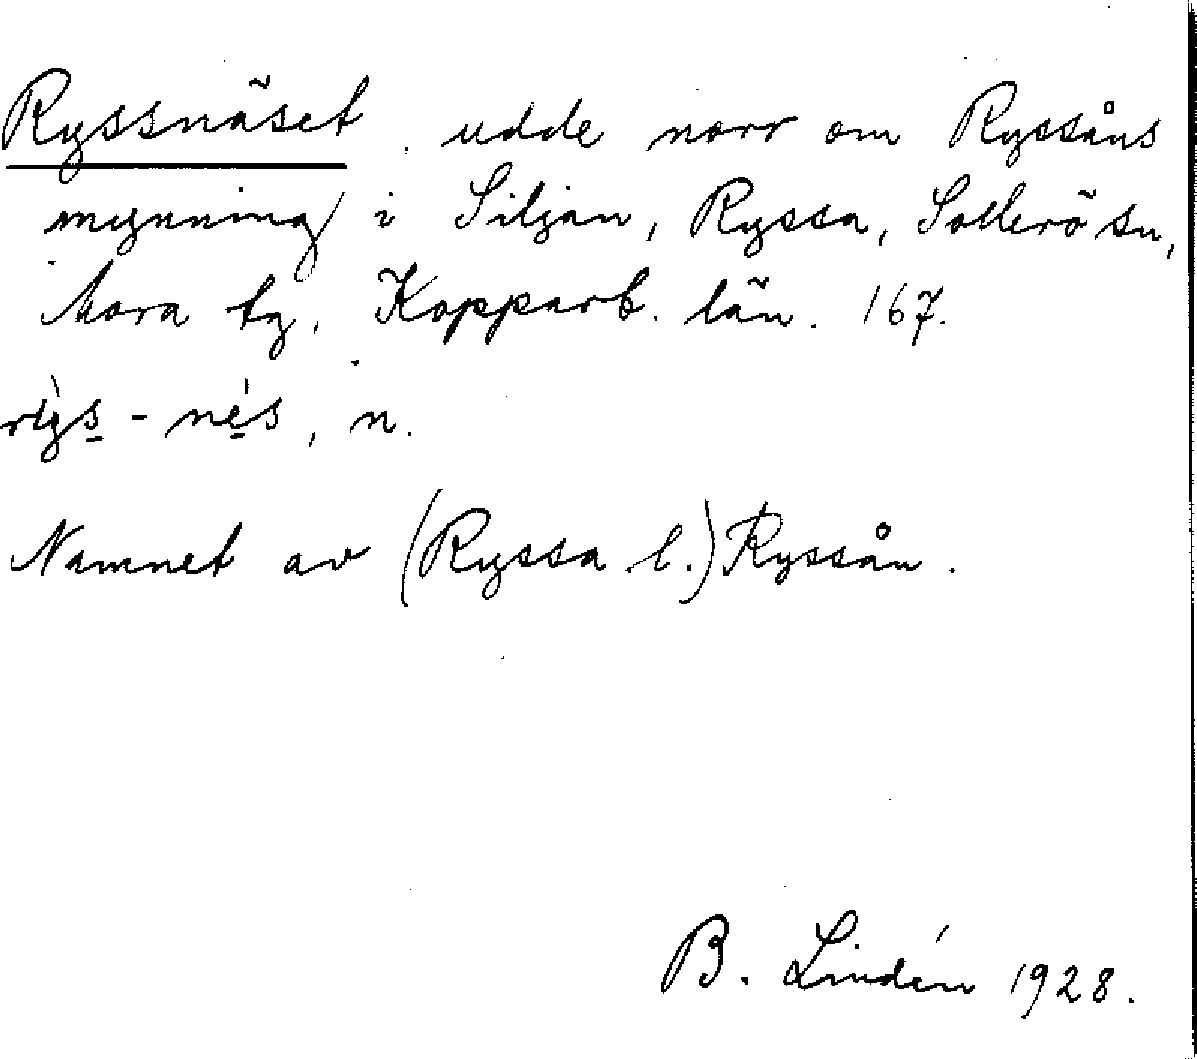 Ryssnäset. udde norr om Ryssåns
mynning i Siljan, Ryssa, Sollerö sn,
Mora tg, Kopparb. län. 167.
nés, n.
Namnet av (Ryssa l.) Ryssån.
B. Lindén 1928.